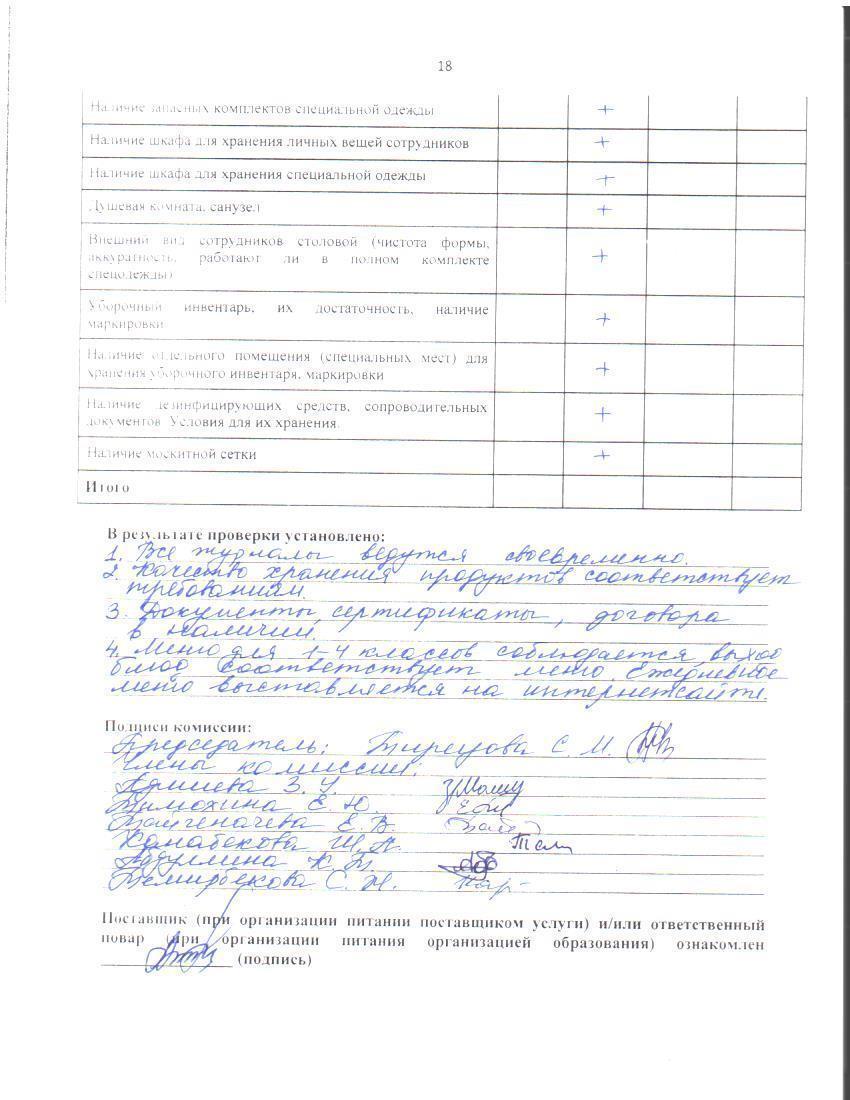 18
Наличие запасных комплектов специальной одежды +
Наличие шкафа для хранения личных вещей сотрудников +
Наличие шкафа для хранения специальной одежды +
Душевая комната, санузел +
Внешний вид сотрудников столовой (чистота формы,
аккуратность, работают ли в полном комплекте +
спецодежды)
Уборочный инвентарь, их достаточность, наличие
маркировки +
Наличие отдельного помещения (специальных мест) для
хранения уборочного инвентаря, маркировки +
Наличие дезинфицирующих средств, сопроводительных
документов. Условия для их хранения. +
Наличие москитной сетки +
Итого
В результате проверки установлено:
1. Все журналы ведутся своевременно.
2. Качество хранения продуктов соответствует
требованиям.
3. Документы, сертификаты, договора
в наличии.
4. Меню для 1-4 классов соблюдается, выход
блюд соответствует меню. Ежедневное
меню выставляется на интернетсайте.
Подписи комиссии:
Председатель: С. М.
Члены комиссии:
З. У.
Тимохина Е. Ю.
Е. В.
Канабекова Ш. А.
К. Т.
Темирбекова С. Ж.
Поставщик (при организации питании поставщиком услуги) и/или ответственный
повар (при организации питания организацией образования) ознакомлен
(подпись)